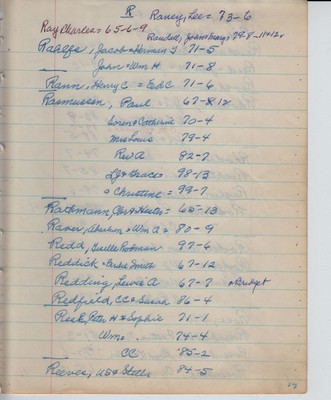 R
Raney, Lee = 73-6
Ray Charles = 65-6-9
Randall, John & Mary 79-8-11+12
Raalfs, Jacob & Herman J 71-5
John & Wm H 71-8
Rann, Henry C = E&C 71-6
Rasmussen, Paul 67-8-12
Loren & Catherine 70-4
Mrs Louis 79-4
Rev A 82-7
Lg & Grace 98-13
Christine = 99-7
Rathmann, & = 65-13
Raver, Abraham & Wm A = 80-9
Redd, Luella Rodman 97-6
Reddick - Smith 67-12
Redding, Lewis A 67-7 & Bridget
Redfield, CC & Sarah 86-4
Peter H & Sophie 71-1
Wm. 74-4
CC 85-2
Reeves, & Stella 84-5